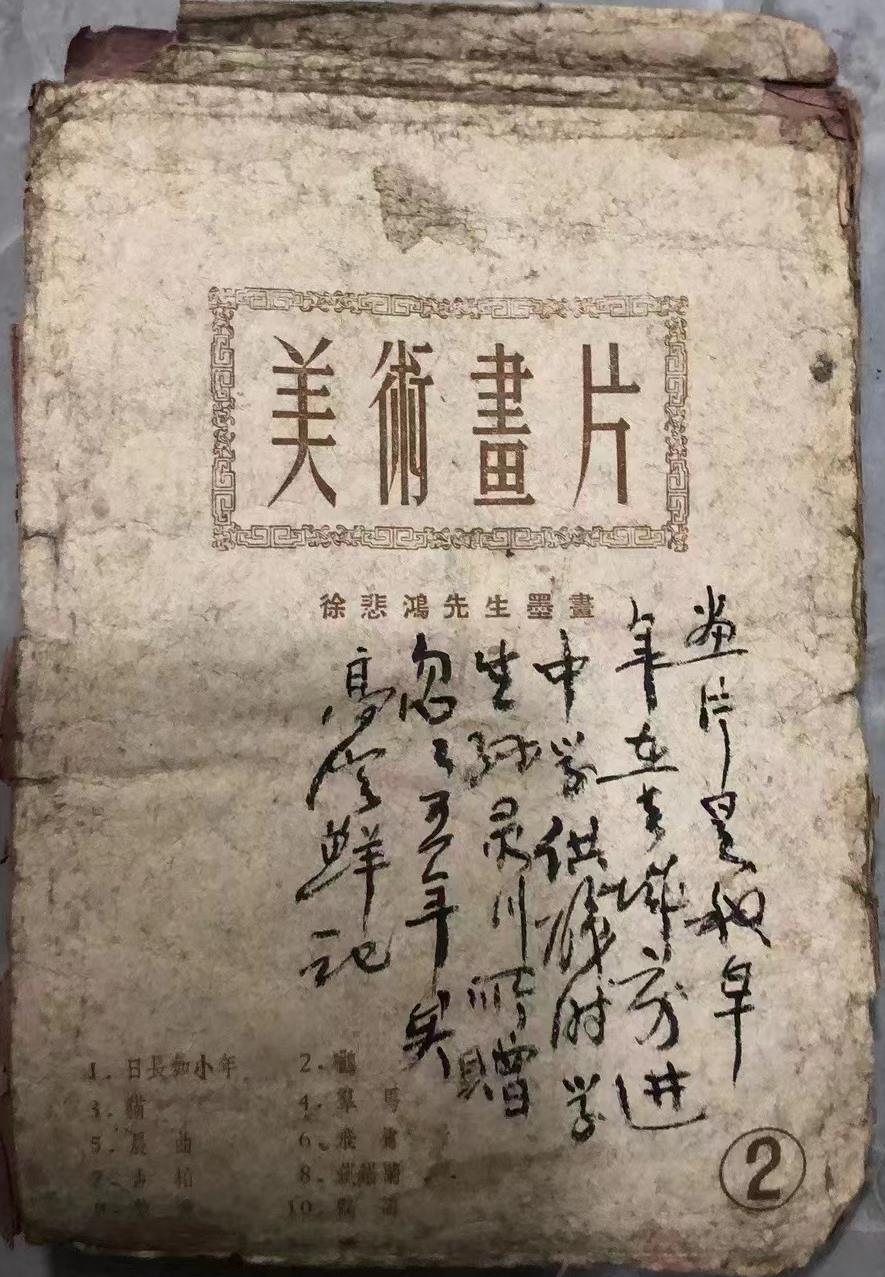 美術畫片
徐悲鴻先生墨畫
画片是我早
年在 城前进
中学供职时学
生孙灵川所赠
忽忽五年矣
高 鲜记
1. 日長如小年
2. 鶴
3. 貓
4. 羣 馬
5. 晨 曲
6. 飛
7. 古 柏
8. 
9. 
10. 
2